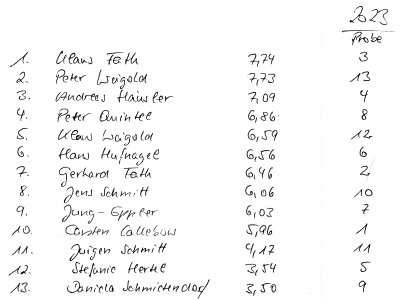 2023
Probe
1. Klaus Fath 7,74 3
2. Peter Weigold 7,73 13
3. Andreas Häusler 7,09 4
4. Peter Quintel 6,86 8
5. Klaus Weigold 6,59 12
6. Hans Hufnagel 6,56 6
7. Gerhard Fath 6,46 2
8. Jens Schmitt 6,06 10
9. Jung-Eppler 6,03 7
10. Carsten Callebow 5,96 1
11. Jürgen Schmitt 4,17 11
12. Stefanie Hertel 3,54 5
13. Daniela Schmietendorf 3,50 9